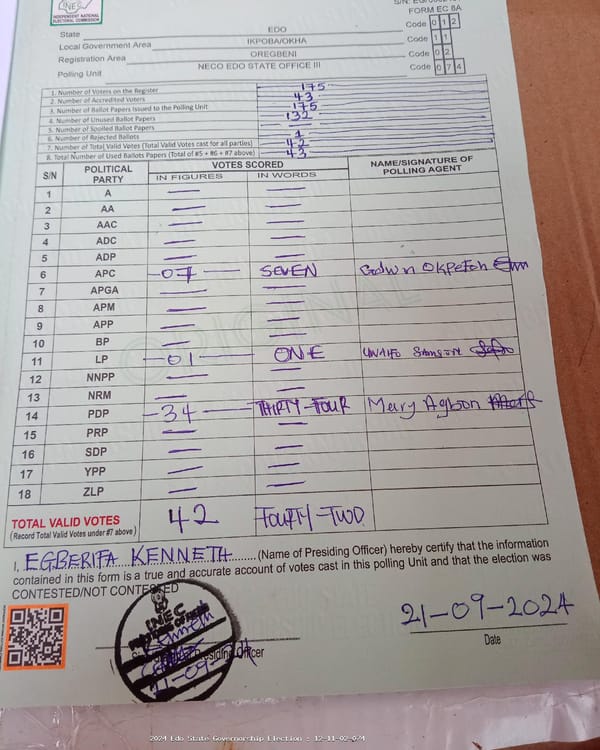 INEC
INDEPENDENT NATIONAL
ELECTORAL COMMISSION
FORM EC 8A
State EDO Code 0 1 2
Local Government Area IKPOBA/OKHA Code 1 1
Registration Area OREGBENI Code 0 2
Polling Unit NECO EDO STATE OFFICE III Code 0 7 4
1. Number of Voters on the Register 175
2. Number of Accredited Voters 43
3. Number of Ballot Papers Issued to the Polling Unit 175
4. Number of Unused Ballot Papers 132
5. Number of Spoiled Ballot Papers —
6. Number of Rejected Ballots 1
7. Number of Total Valid Votes (Total Valid Votes cast for all parties) 42
8. Total Number of Used Ballots Papers (Total of #5 + #6 + #7 above) 43
S/N POLITICAL PARTY VOTES SCORED NAME/SIGNATURE OF POLLING AGENT
IN FIGURES IN WORDS
1 A — —
2 AA — —
3 AAC — —
4 ADC — —
5 ADP — —
6 APC -07- SEVEN Godwin Okpefoh
7 APGA — —
8 APM — —
9 APP — —
10 BP — —
11 LP -01- ONE SAMSON
12 NNPP — —
13 NRM — —
14 PDP -34- THIRTY-FOUR Mary Agbon
15 PRP — —
16 SDP — —
17 YPP — —
18 ZLP — —
ORIGINAL
TOTAL VALID VOTES 42 FOURTY-TWO
(Record Total Valid Votes under #7 above)
I, EGBERIFA KENNETH (Name of Presiding Officer) hereby certify that the information
contained in this form is a true and accurate account of votes cast in this polling Unit and that the election was
CONTESTED/NOT CONTESTED
INEC
Kenneth
21-09-24
Presiding Officer
21-09-2024
Date
2024 Edo State Governorship Election : 12-11-02-074